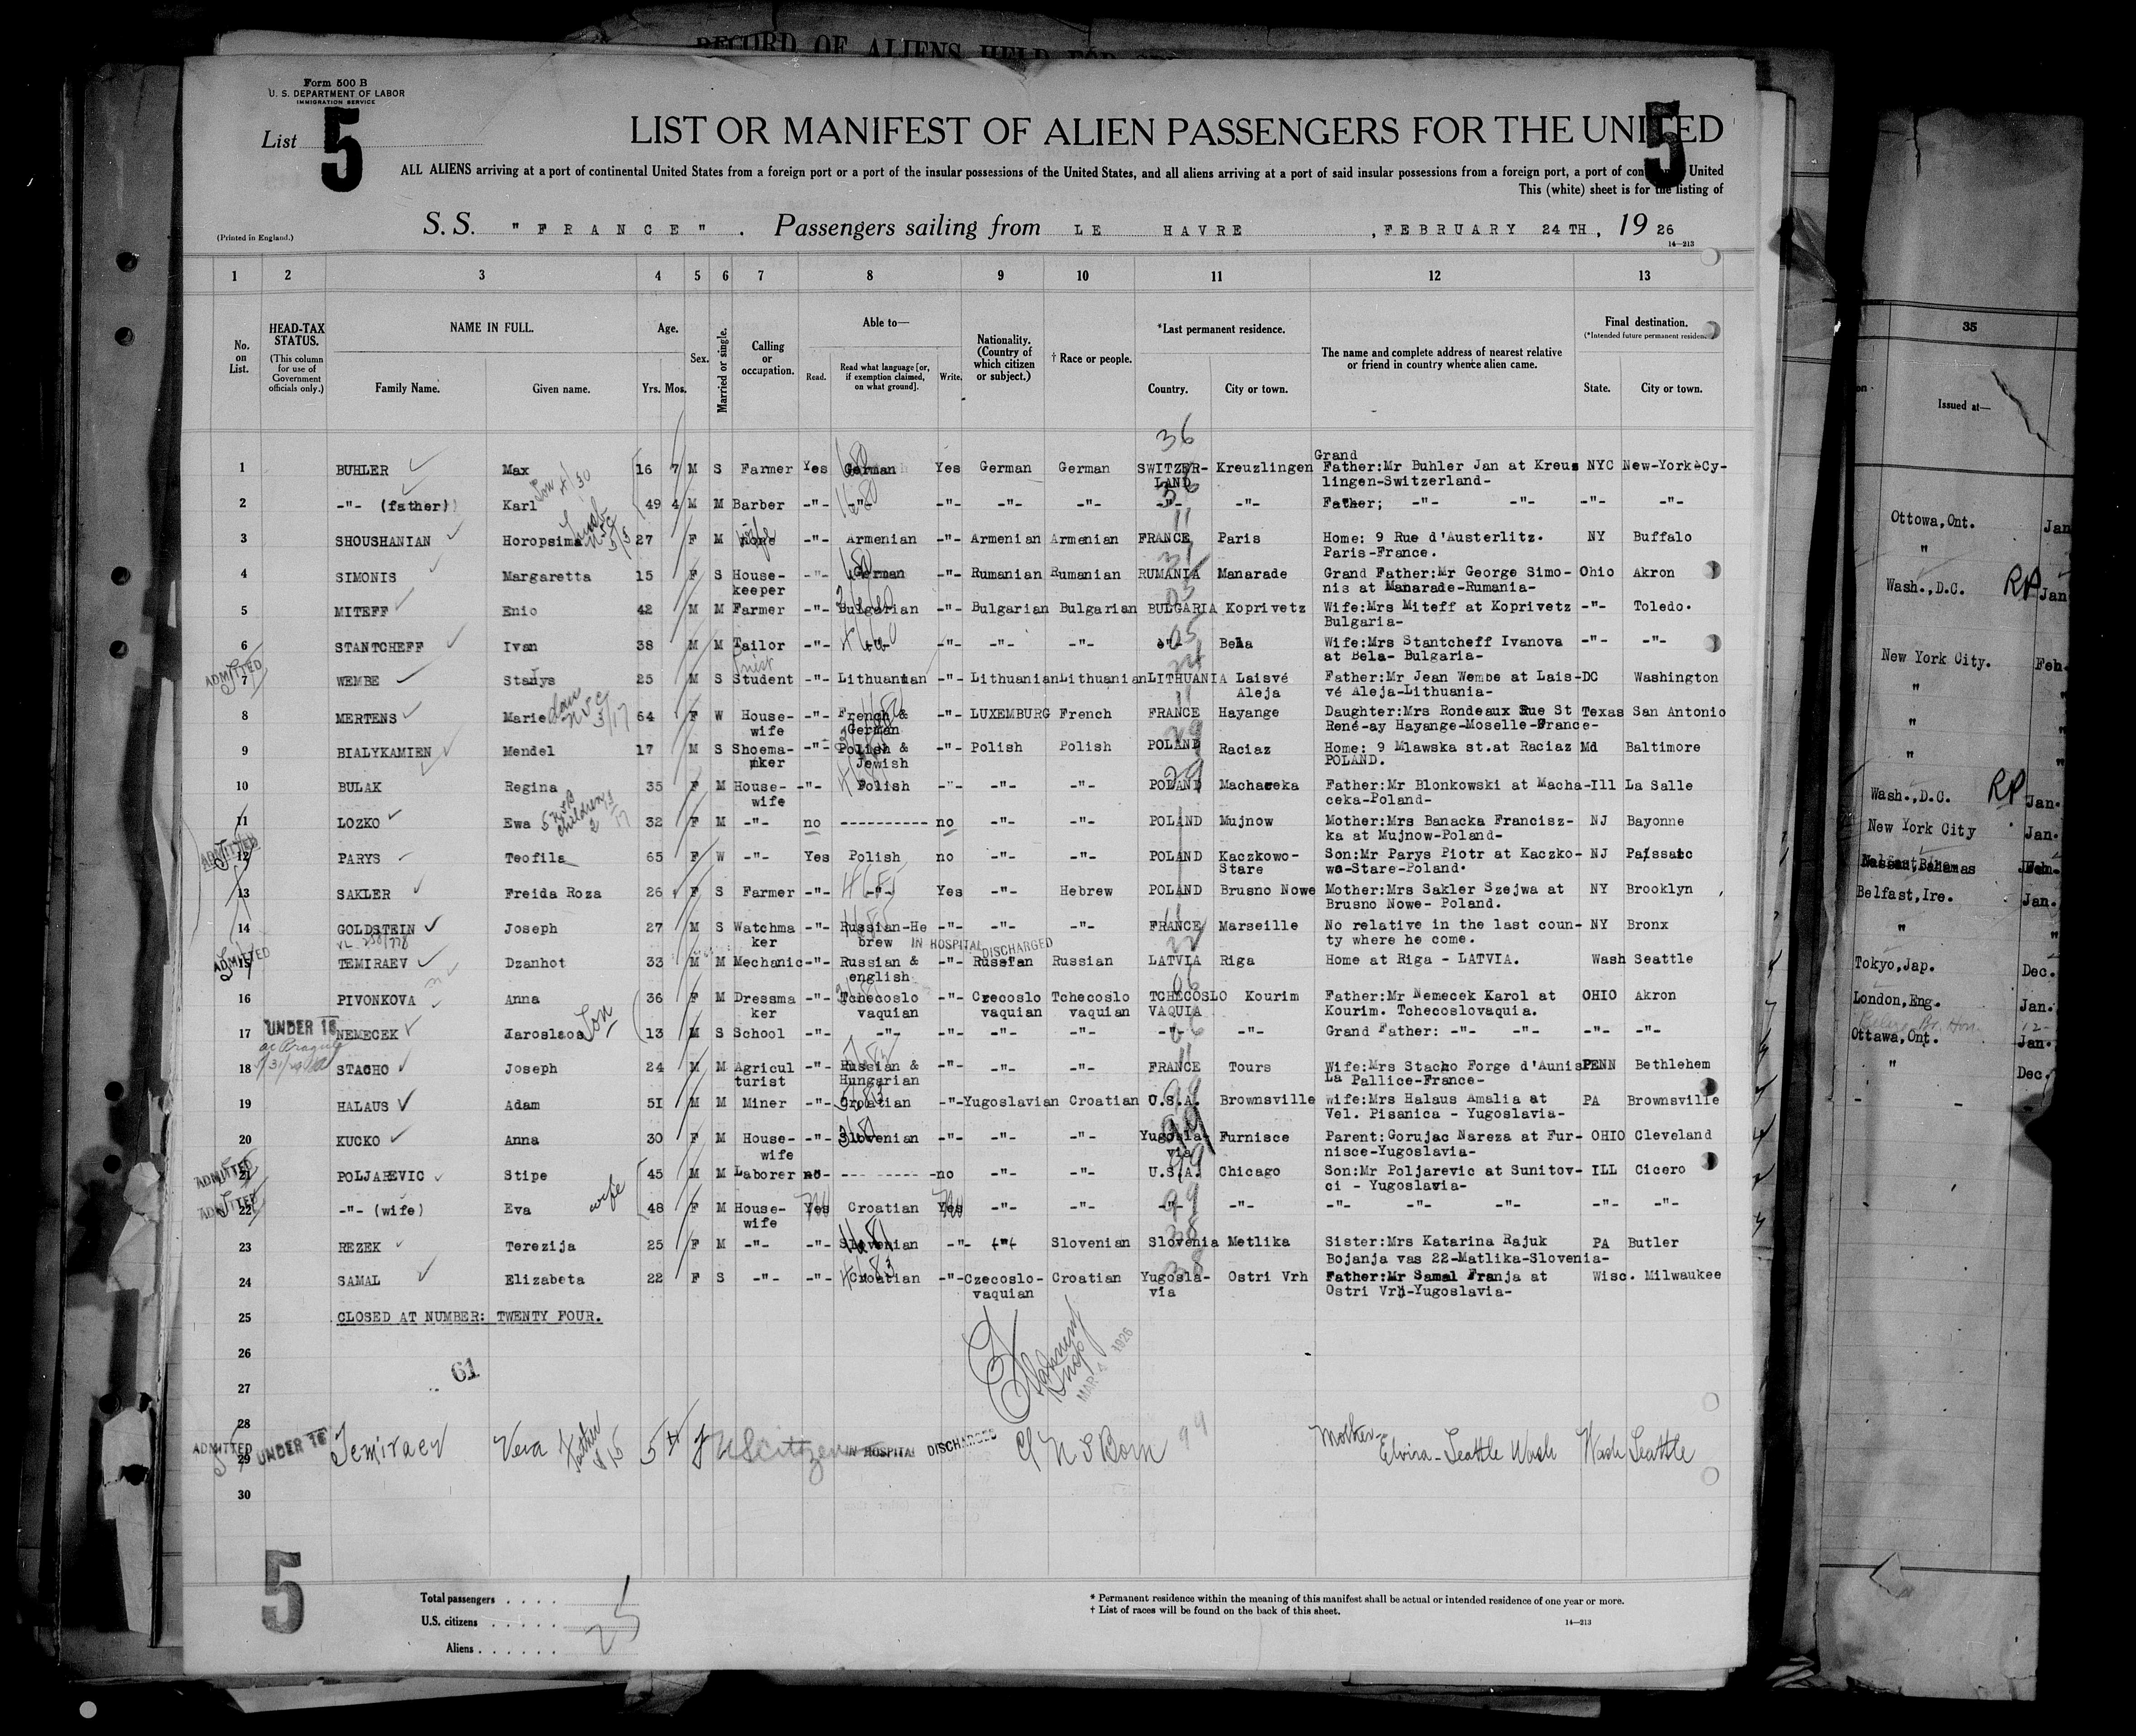 RECORD OF ALIENS HELD FOR
Form 500 B
U. S. DEPARTMENT OF LABOR
IMMIGRATION SERVICE
List 5
LIST OR MANIFEST OF ALIEN PASSENGERS FOR THE UNITED
5
ALL ALIENS arriving at a port of continental United States from a foreign port or a port of the insular possessions of the United States, and all aliens arriving at a port of said insular possessions from a foreign port, a port of con United
This (white) sheet is for the listing of
(Printed in England.)
S.S. "FRANCE". Passengers sailing from LE HAVRE, FEBRUARY 24TH, 1926
14—213
1 2 3 4 5 6 7 8 9 10 11 12 13
No. on List.
HEAD-TAX STATUS.
(This column for use of Government officials only.)
NAME IN FULL.
Family Name. Given name.
Age.
Yrs. Mos.
Sex.
Married or single.
Calling or occupation.
Able to—
Read. Read what language [or, if exemption claimed, on what ground]. Write.
Nationality. (Country of which citizen or subject.)
† Race or people.
*Last permanent residence.
Country. City or town.
The name and complete address of nearest relative or friend in country whence alien came.
Final destination.
(*Intended future permanent residence
State. City or town.
36
1 BUHLER Max 16 7 M S Farmer Yes German Yes German German SWITZER-LAND Kreuzlingen Grand Father:Mr Buhler Jan at Kreus NYC New-York-Cy-
lingen-Switzerland-
2 -"- (father) Karl Son 49 4 M M Barber -"- -"- -"- -"- -"- -"- -"- Father; -"- -"- -"- -"-
3 SHOUSHANIAN Horopsima 27 F M wife -"- Armenian -"- Armenian Armenian FRANCE Paris Home: 9 Rue d'Austerlitz. NY Buffalo
Paris-France.
4 SIMONIS Margaretta 15 F S House-keeper -"- German -"- Rumanian Rumanian RUMANIA Manarade Grand Father:Mr George Simo- Ohio Akron
nis at Manarade-Rumania-
5 MITEFF Enio 42 M M Farmer -"- Bulgarian -"- Bulgarian Bulgarian BULGARIA Koprivetz Wife:Mrs Miteff at Koprivetz -"- Toledo.
Bulgaria-
6 STANTCHEFF Ivan 38 M M Tailor -"- -"- -"- -"- -"- -"- Bela Wife:Mrs Stantcheff Ivanova -"- -"-
at Bela- Bulgaria-
ADMITTED
7 WEMBE Stanys 25 M S Student Priest -"- Lithuanian -"- Lithuanian Lithuanian LITHUANIA Laisvé Aleja Father:Mr Jean Wembe at Lais- DC Washington
vé Aleja-Lithuania-
8 MERTENS Marie 64 F W House-wife -"- French & German -"- LUXEMBURG French FRANCE Hayange Daughter:Mrs Rondeaux Rue St Texas San Antonio
René-ay Hayange-Moselle-France-
9 BIALYKAMIEN Mendel 17 M S Shoema-ker -"- Polish & Jewish -"- Polish Polish POLAND Raciaz Home: 9 Mlawska st.at Raciaz Md Baltimore
POLAND.
10 BULAK Regina 35 F M House-wife -"- Polish -"- -"- -"- POLAND Machareka Father:Mr Blonkowski at Macha- Ill La Salle
ceka-Poland-
11 LOZKO Ewa children 2 32 F M -"- no ---------- no -"- -"- POLAND Mujnow Mother:Mrs Banacka Francisz- NJ Bayonne
ka at Mujnow-Poland-
ADMITTED
12 PARYS Teofila 65 F W -"- Yes Polish no -"- -"- POLAND Kaczkowo-Stare Son:Mr Parys Piotr at Kaczko- NJ Passaic
wo-Stare-Poland.
13 SAKLER Freida Roza 26 F S Farmer -"- -"- Yes -"- Hebrew POLAND Brusno Nowe Mother:Mrs Sakler Szejwa at NY Brooklyn
Brusno Nowe- Poland.
14 GOLDSTEIN Joseph 27 M S Watchmaker -"- Russian-Hebrew -"- -"- -"- FRANCE Marseille No relative in the last coun- NY Bronx
ty where he come.
IN HOSPITAL DISCHARGED
ADMITTED
15 TEMIRAEV Dzanhot 33 M M Mechanic -"- Russian & english -"- Russian Russian LATVIA Riga Home at Riga - LATVIA. Wash Seattle
16 PIVONKOVA Anna 36 F M Dressmaker -"- Tchecoslovaquian -"- Czecoslovaquian Tchecoslovaquian TCHECOSLOVAQUIA Kourim Father:Mr Nemecek Karol at OHIO Akron
Kourim. Tchecoslovaquia.
UNDER 16
17 NEMECEK Jaroslaos Son 13 M S School -"- -"- -"- -"- -"- -"- -"- Grand Father: -"- -"- -"- -"-
18 STACHO Joseph 24 M M Agriculturist -"- Russian & Hungarian -"- -"- -"- FRANCE Tours Wife:Mrs Stacho Forge d'Aunis PENN Bethlehem
La Pallice-France-
19 HALAUS Adam 51 M M Miner -"- Croatian -"- Yugoslavian Croatian U.S.A. Brownsville wife:Mrs Halaus Amalia at PA Brownsville
Vel. Pisanica - Yugoslavia-
20 KUCKO Anna 30 F M House-wife -"- Slovenian -"- -"- -"- Yugosla-via Furnisce Parent:Gorujac Nareza at Fur- OHIO Cleveland
nisce-Yugoslavia-
ADMITTED
21 POLJAREVIC Stipe 45 M M Laborer no- --------- -no -"- -"- U.S.A. Chicago Son:Mr Poljarevic at Sunitov- ILL Cicero
ci - Yugoslavia-
ADMITTED
22 -"- (wife) Eva wife 48 F M House-wife Yes Croatian Yes -"- -"- -"- -"- -"- -"- -"- -"- -"-
23 REZEK Terezija 25 F M -"- -"- Slovenian -"- -"- Slovenian Slovenia Metlika Sister:Mrs Katarina Rajuk PA Butler
Bojanja vas 22-Matlika-Slovenia-
24 SAMAL Elizabeta 22 F S -"- -"- Croatian -"- Czecoslo-vaquian Croatian Yugosla-via Ostri Vrh Father:Mr Samal Franja at Wisc. Milwaukee
Ostri Vrh-Yugoslavia-
25 CLOSED AT NUMBER: TWENTY FOUR.
26
MAR 4 1926
61
27
28
ADMITTED UNDER 16
29 Temiraev Vera Father 5 f US citizen IN HOSPITAL DISCHARGED U S Born 99 Mother Elvira - Seattle Wash Wash Seattle
30
5
Total passengers . . . .
U.S. citizens . . . . . .
Aliens . . . . . . .
25
* Permanent residence within the meaning of this manifest shall be actual or intended residence of one year or more.
† List of races will be found on the back of this sheet.
14—213
35
Issued at—
Ottowa,Ont. Jan
"
Wash.,D.C. RP Jan
New York City. Feb.
"
"
"
Wash.,D.C. RP Jan.
New York City Jan.
Belfast,Ire. Jan.
"
Tokyo,Jap. Dec.
London,Eng. Jan.
Ottawa,Ont. Jan.
" Dec.